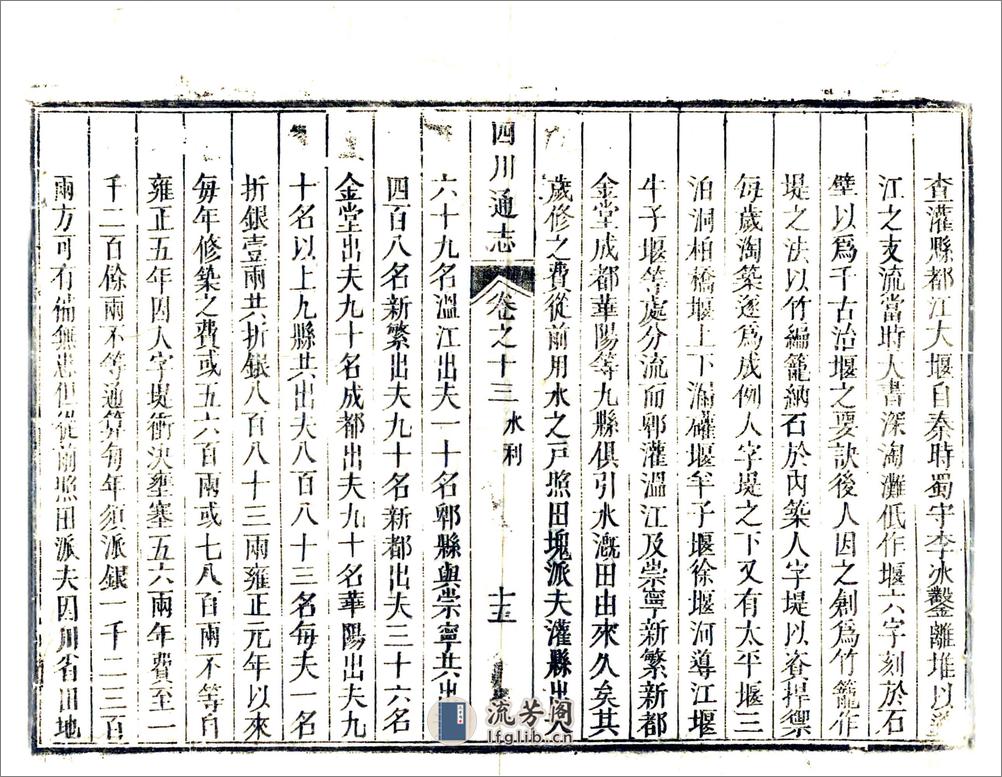 查灌縣都江大堰自秦時蜀守李冰鑿離堆以
江之支流當時人書深淘灘低作堰六字刻於石
壁以爲千古治堰之要訣後人因之創爲竹籠作
堤之法以竹編籠納石於內築人字堤以資捍禦
每歲淘築逐爲成例人字堤之下又有太平堰三
泊洞柏橋堰上下漏罐堰羊子堰徐堰河導江堰
牛子堰等處分流而郫灌溫江及崇寧新繁新都
金堂成都華陽等九縣俱引水漑田由來久矣其
歲修之費從前用水之戸照田塊派夫灌縣出夫
四川通志 卷之十三 水利 十五
六十九名溫江出夫一十名郫縣與崇寧共出
四百八名新繁出夫九十名新都出夫三十六名
金堂出夫九十名成都出夫九十名華陽出夫九
十名以上九縣共出夫八百八十三名每夫一名
折銀壹兩共折銀八百八十三兩雍正元年以來
每年修築之費或五六百兩或七八百兩不等自
雍正五年因人字堤衝決壅塞五六兩年費至一
千二百餘兩不等通算每年須派銀一千二三百
兩方可有備無患但從前照田派夫因川省田地
流芳閣
lfglib.cn